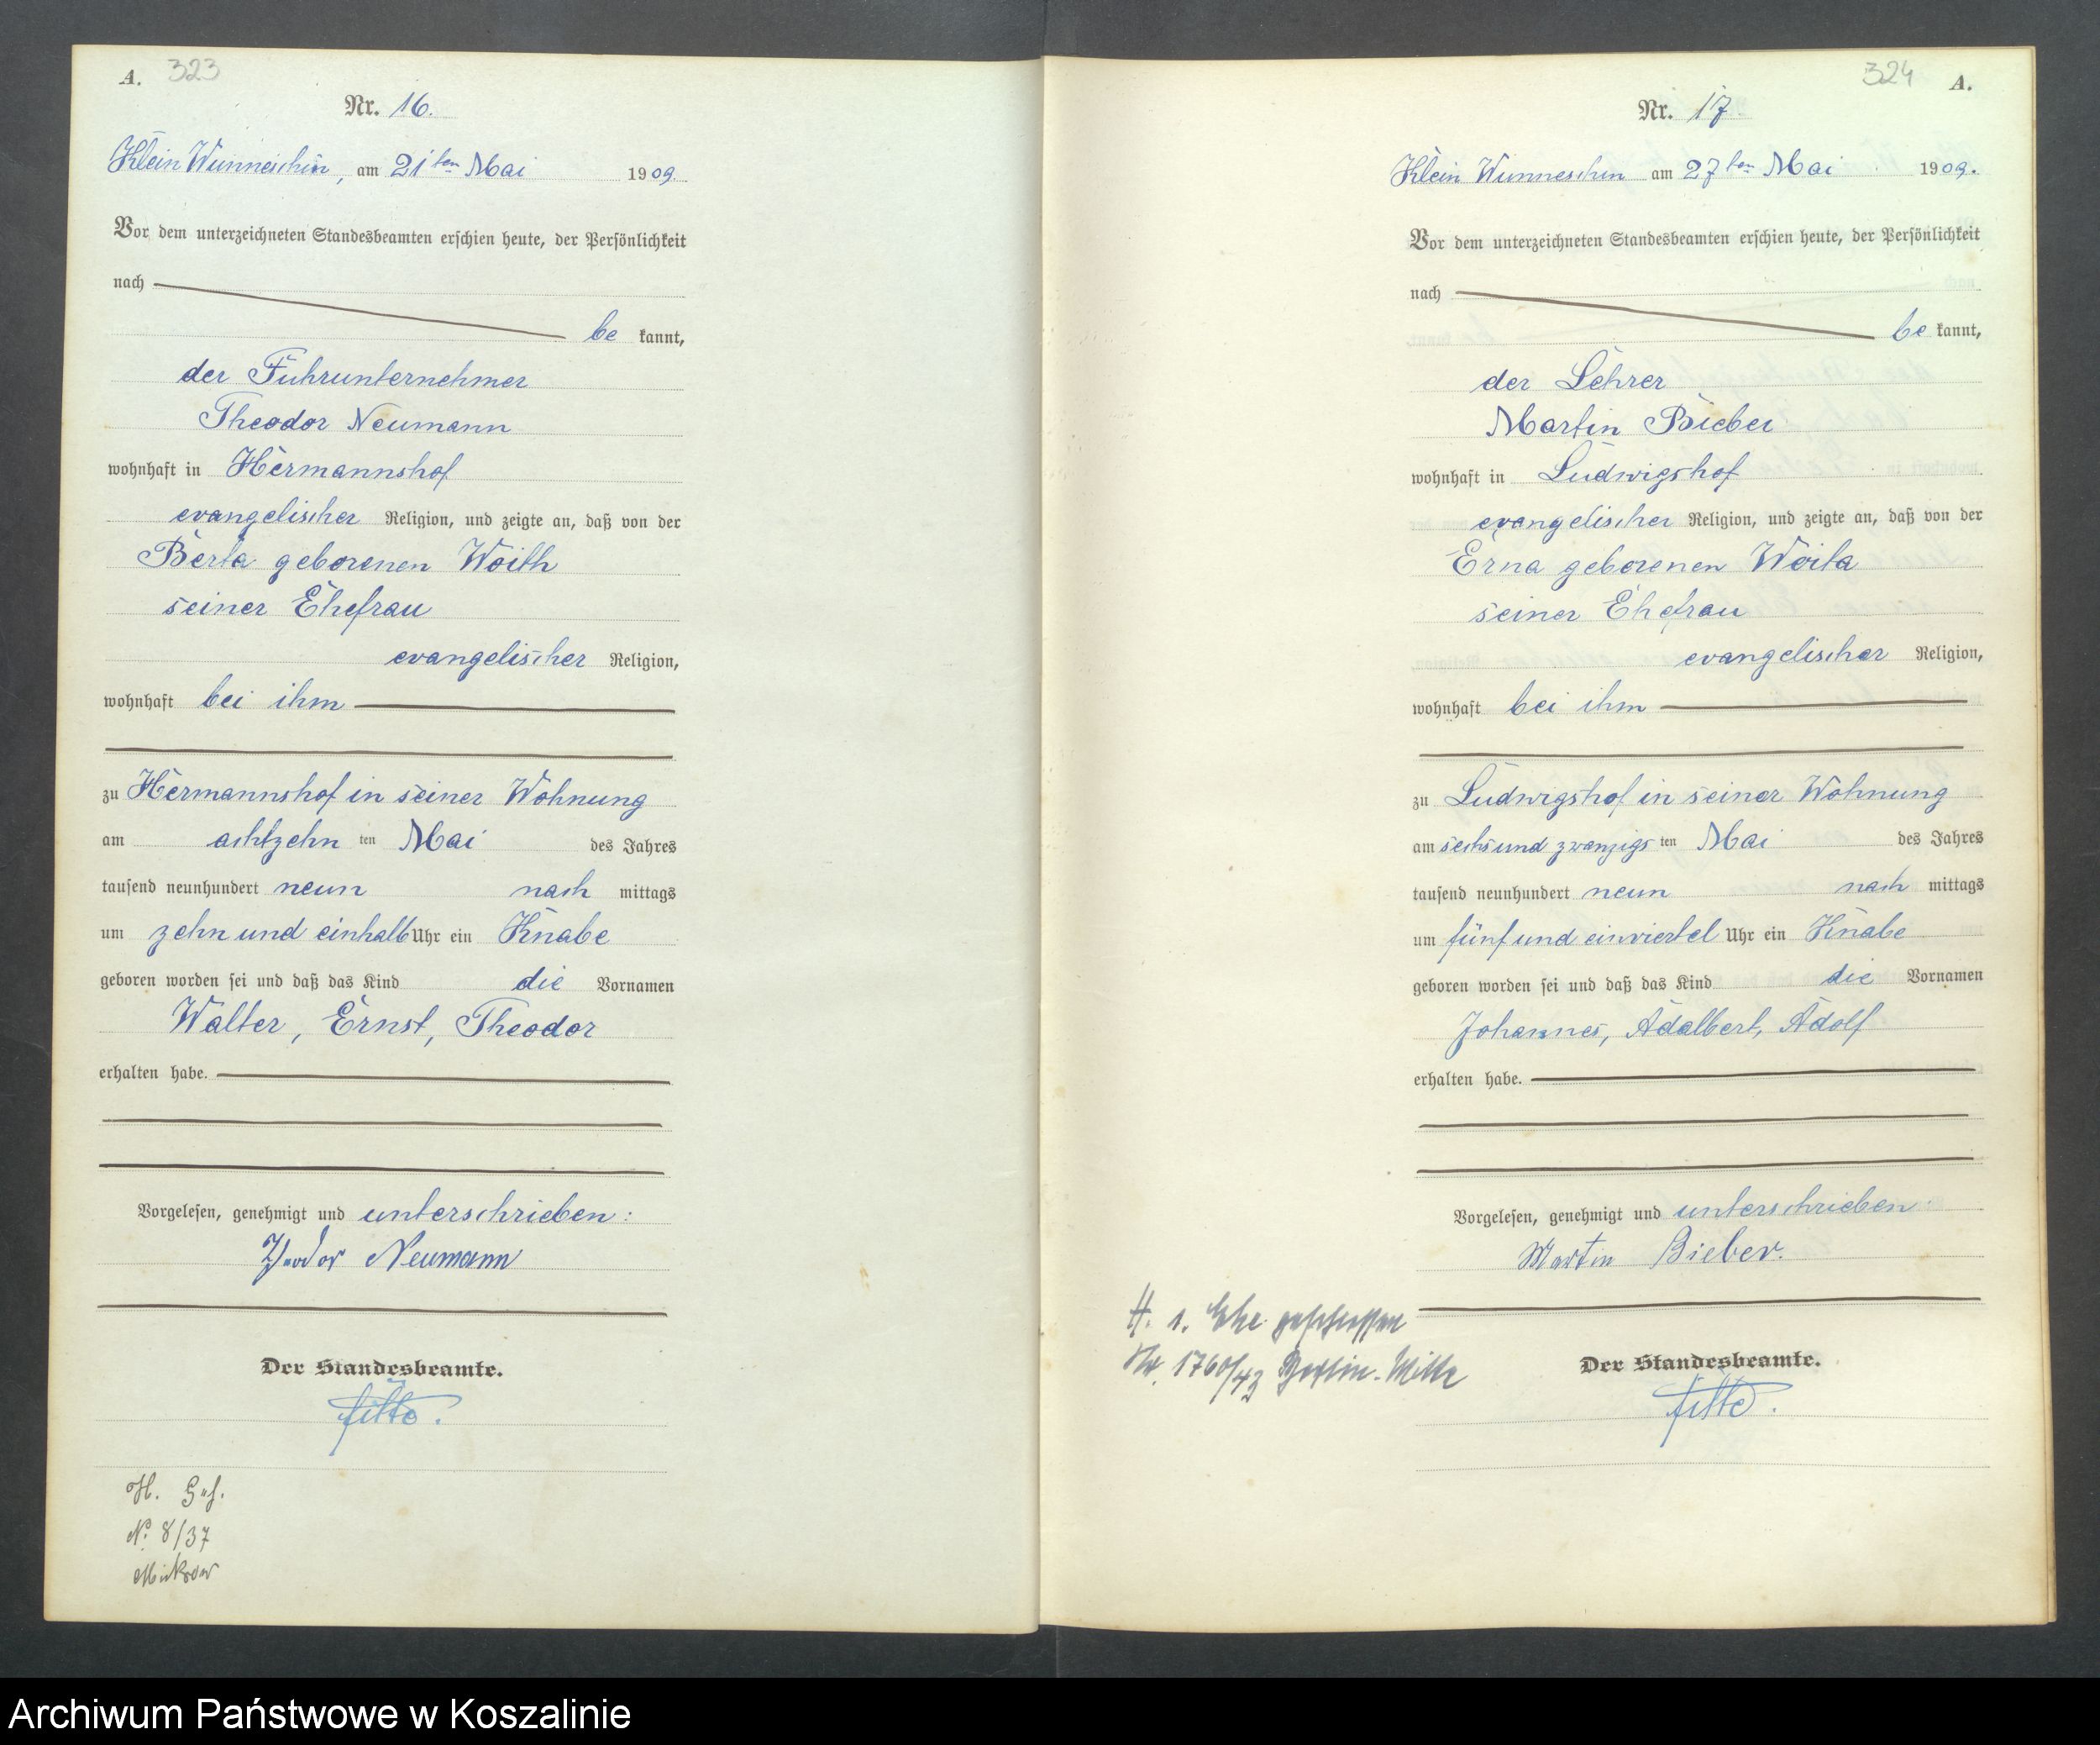 A. 323
Nr. 16.
Klein Wunneschin, am 21ten Mai 1909.
Vor dem unterzeichneten Standesbeamten erschien heute, der Persönlichkeit
nach
be kannt,
der Fuhrunternehmer
Theodor Neumann
wohnhaft in Hermannshof
evangelischer Religion, und zeigte an, daß von der
Berta geborenen Woith
seiner Ehefrau
evangelischer Religion,
wohnhaft bei ihm
zu Hermannshof in seiner Wohnung
am achtzehn ten Mai des Jahres
tausend neunhundert neun nach mittags
um zehn und einhalb Uhr ein Knabe
geboren worden sei und daß das Kind die Vornamen
Walter, Ernst, Theodor
erhalten habe.
Vorgelesen, genehmigt und unterschrieben:
Theodor Neumann
Der Standesbeamte.
H.
No. 8/37
324 A.
Nr. 17
Klein Wunneschin am 27ten Mai 1909.
Vor dem unterzeichneten Standesbeamten erschien heute, der Persönlichkeit
nach
be kannt,
der Lehrer
Martin Bieber
wohnhaft in Ludwigshof
evangelischer Religion, und zeigte an, daß von der
Erna geborenen Woita
seiner Ehefrau
evangelischer Religion,
wohnhaft bei ihm
zu Ludwigshof in seiner Wohnung
am sechsund zwanzigs ten Mai des Jahres
tausend neunhundert neun nach mittags
um fünf und einviertel Uhr ein Knabe
geboren worden sei und daß das Kind die Vornamen
Johannes, Adalbert, Adolf
erhalten habe.
Vorgelesen, genehmigt und unterschrieben:
Martin Bieber.
H. 1. Ehe geschlossen
Nr. 1760/43 Berlin-Mitte
Der Standesbeamte.
Archiwum Państwowe w Koszalinie